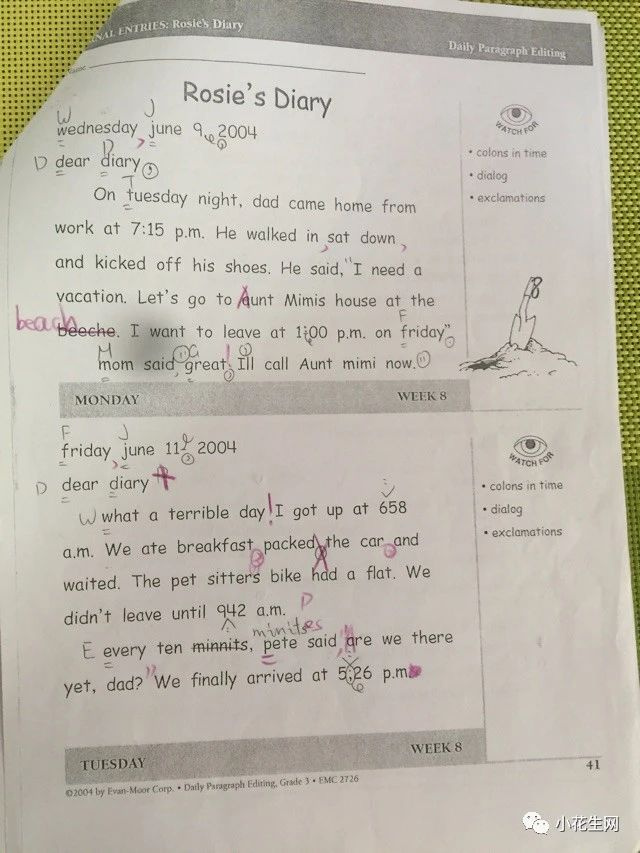 NAL ENTRIES: Rosie's Diary
Daily Paragraph Editing
Rosie's Diary
WATCH FOR
• colons in time
• dialog
• exclamations
W J
wednesday, june 9, 2004
D D
dear diary,
T
On tuesday night, dad came home from
work at 7:15 p.m. He walked in, sat down,
and kicked off his shoes. He said, "I need a
vacation. Let's go to Aunt Mimis house at the
beach
beeche. I want to leave at 1:00 p.m. on friday"
F
M G
mom said, great! Ill call Aunt mimi now.
MONDAY WEEK 8
F J
friday, june 11, 2004
D dear diary
W what a terrible day! I got up at 658
a.m. We ate breakfast, packed the car, and
waited. The pet sitters bike had a flat. We
didn't leave until 942 a.m.
P
minites
E every ten minnits, pete said are we there
yet, dad?" We finally arrived at 5:26 p.m.
WATCH FOR
• colons in time
• dialog
• exclamations
TUESDAY WEEK 8
©2004 by Evan-Moor Corp. • Daily Paragraph Editing, Grade 3 • EMC 2726
41
小花生网